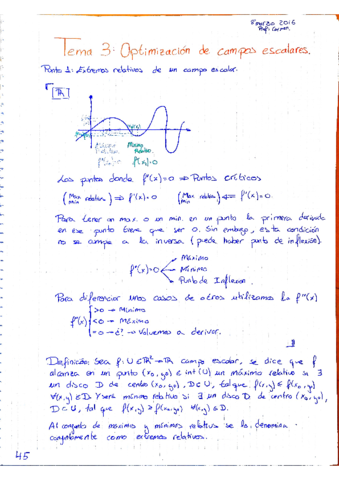 8 marzo 2016
Prof: Carmen.
Tema 3: Optimización de campos escalares.
Punto 1: Extremos relativos de un campo escalar.
ℝ
Máximo Mínimo
Relativo Relativo
f'(x)=0 f'(x)=0
Los puntos donde f'(x)=0 ⇒ Puntos críticos
(Max/min relativo) ⇒ f'(x)=0 (Max/min relativo) ⇍ f'(x)=0
Para tener un max. o un min. en un punto la primera derivada
en ese punto tiene que ser 0. Sin embargo, esta condición
no se cumple a la inversa (puede haber punto de inflexión).
Máximo
f'(x)=0 Mínimo
Punto de Inflexión
Para diferenciar unos casos de otros utilizamos la f''(x)
>0 → Mínimo
f''(x) <0 → Máximo
=0 → ¿? → Volvemos a derivar.
Definición: Sea f: U⊂ℝ²→ℝ campo escalar, se dice que f
alcanza en un punto (x₀,y₀) ∈ int(U) un máximo relativo si ∃
un disco D de centro (x₀,y₀), D⊂U, tal que f(x,y) ≤ f(x₀,y₀)
∀(x,y)∈D. Y será mínimo relativo si ∃ un disco D de centro (x₀,y₀),
D⊂U, tal que f(x,y) ≥ f(x₀,y₀) ∀(x,y)∈D.
Al conjunto de máximos y mínimos relativos se les denomina
conjuntamente como extremos relativos.
45